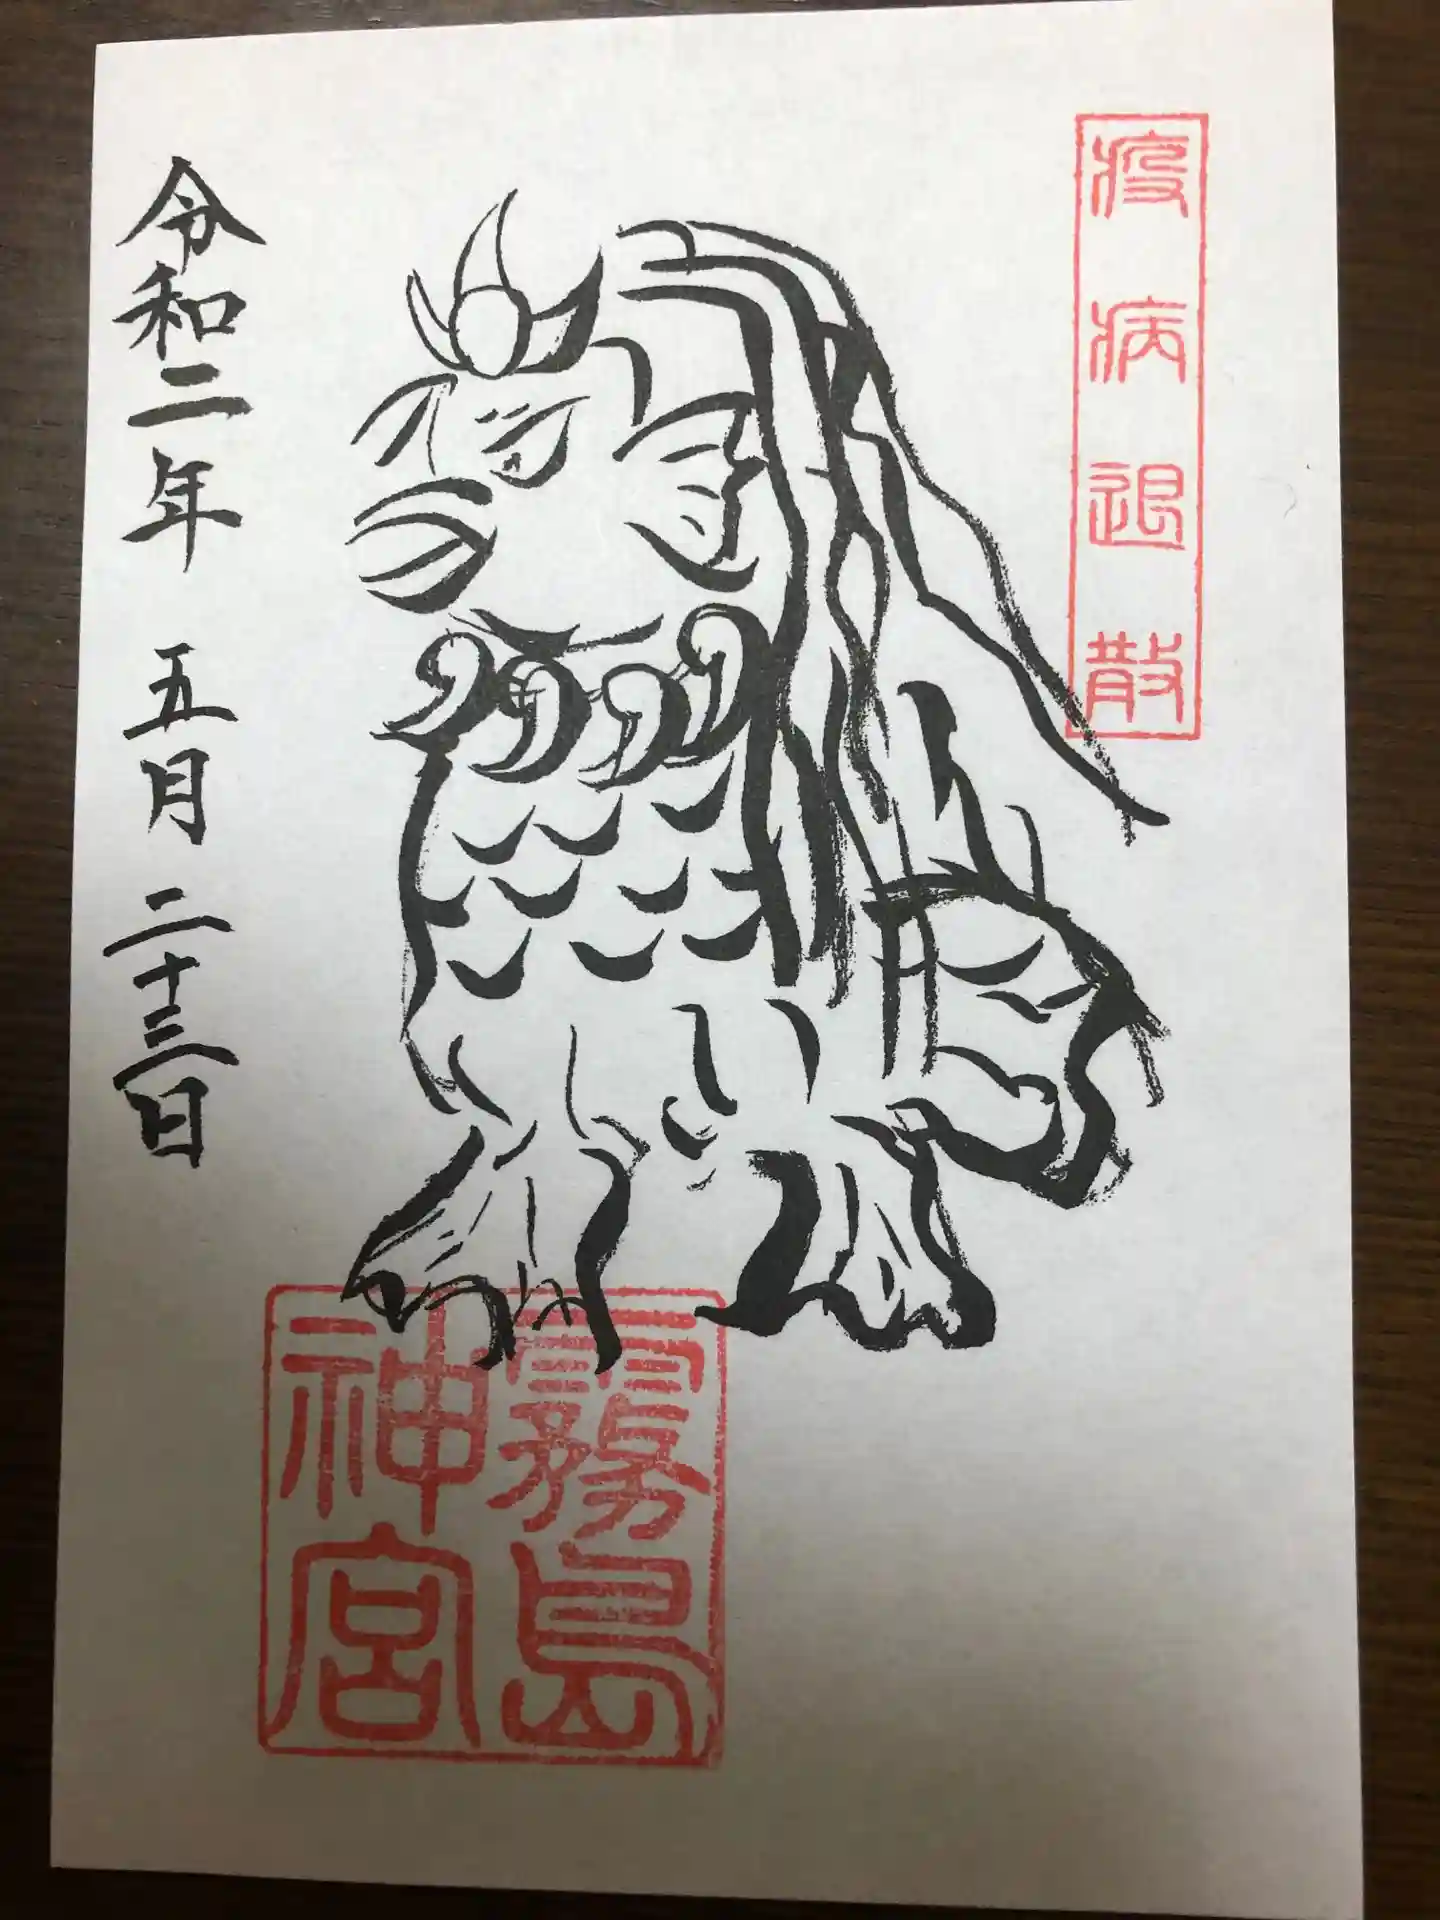 疫病退散
霧島
神宮
令和二年 五月 二十三日